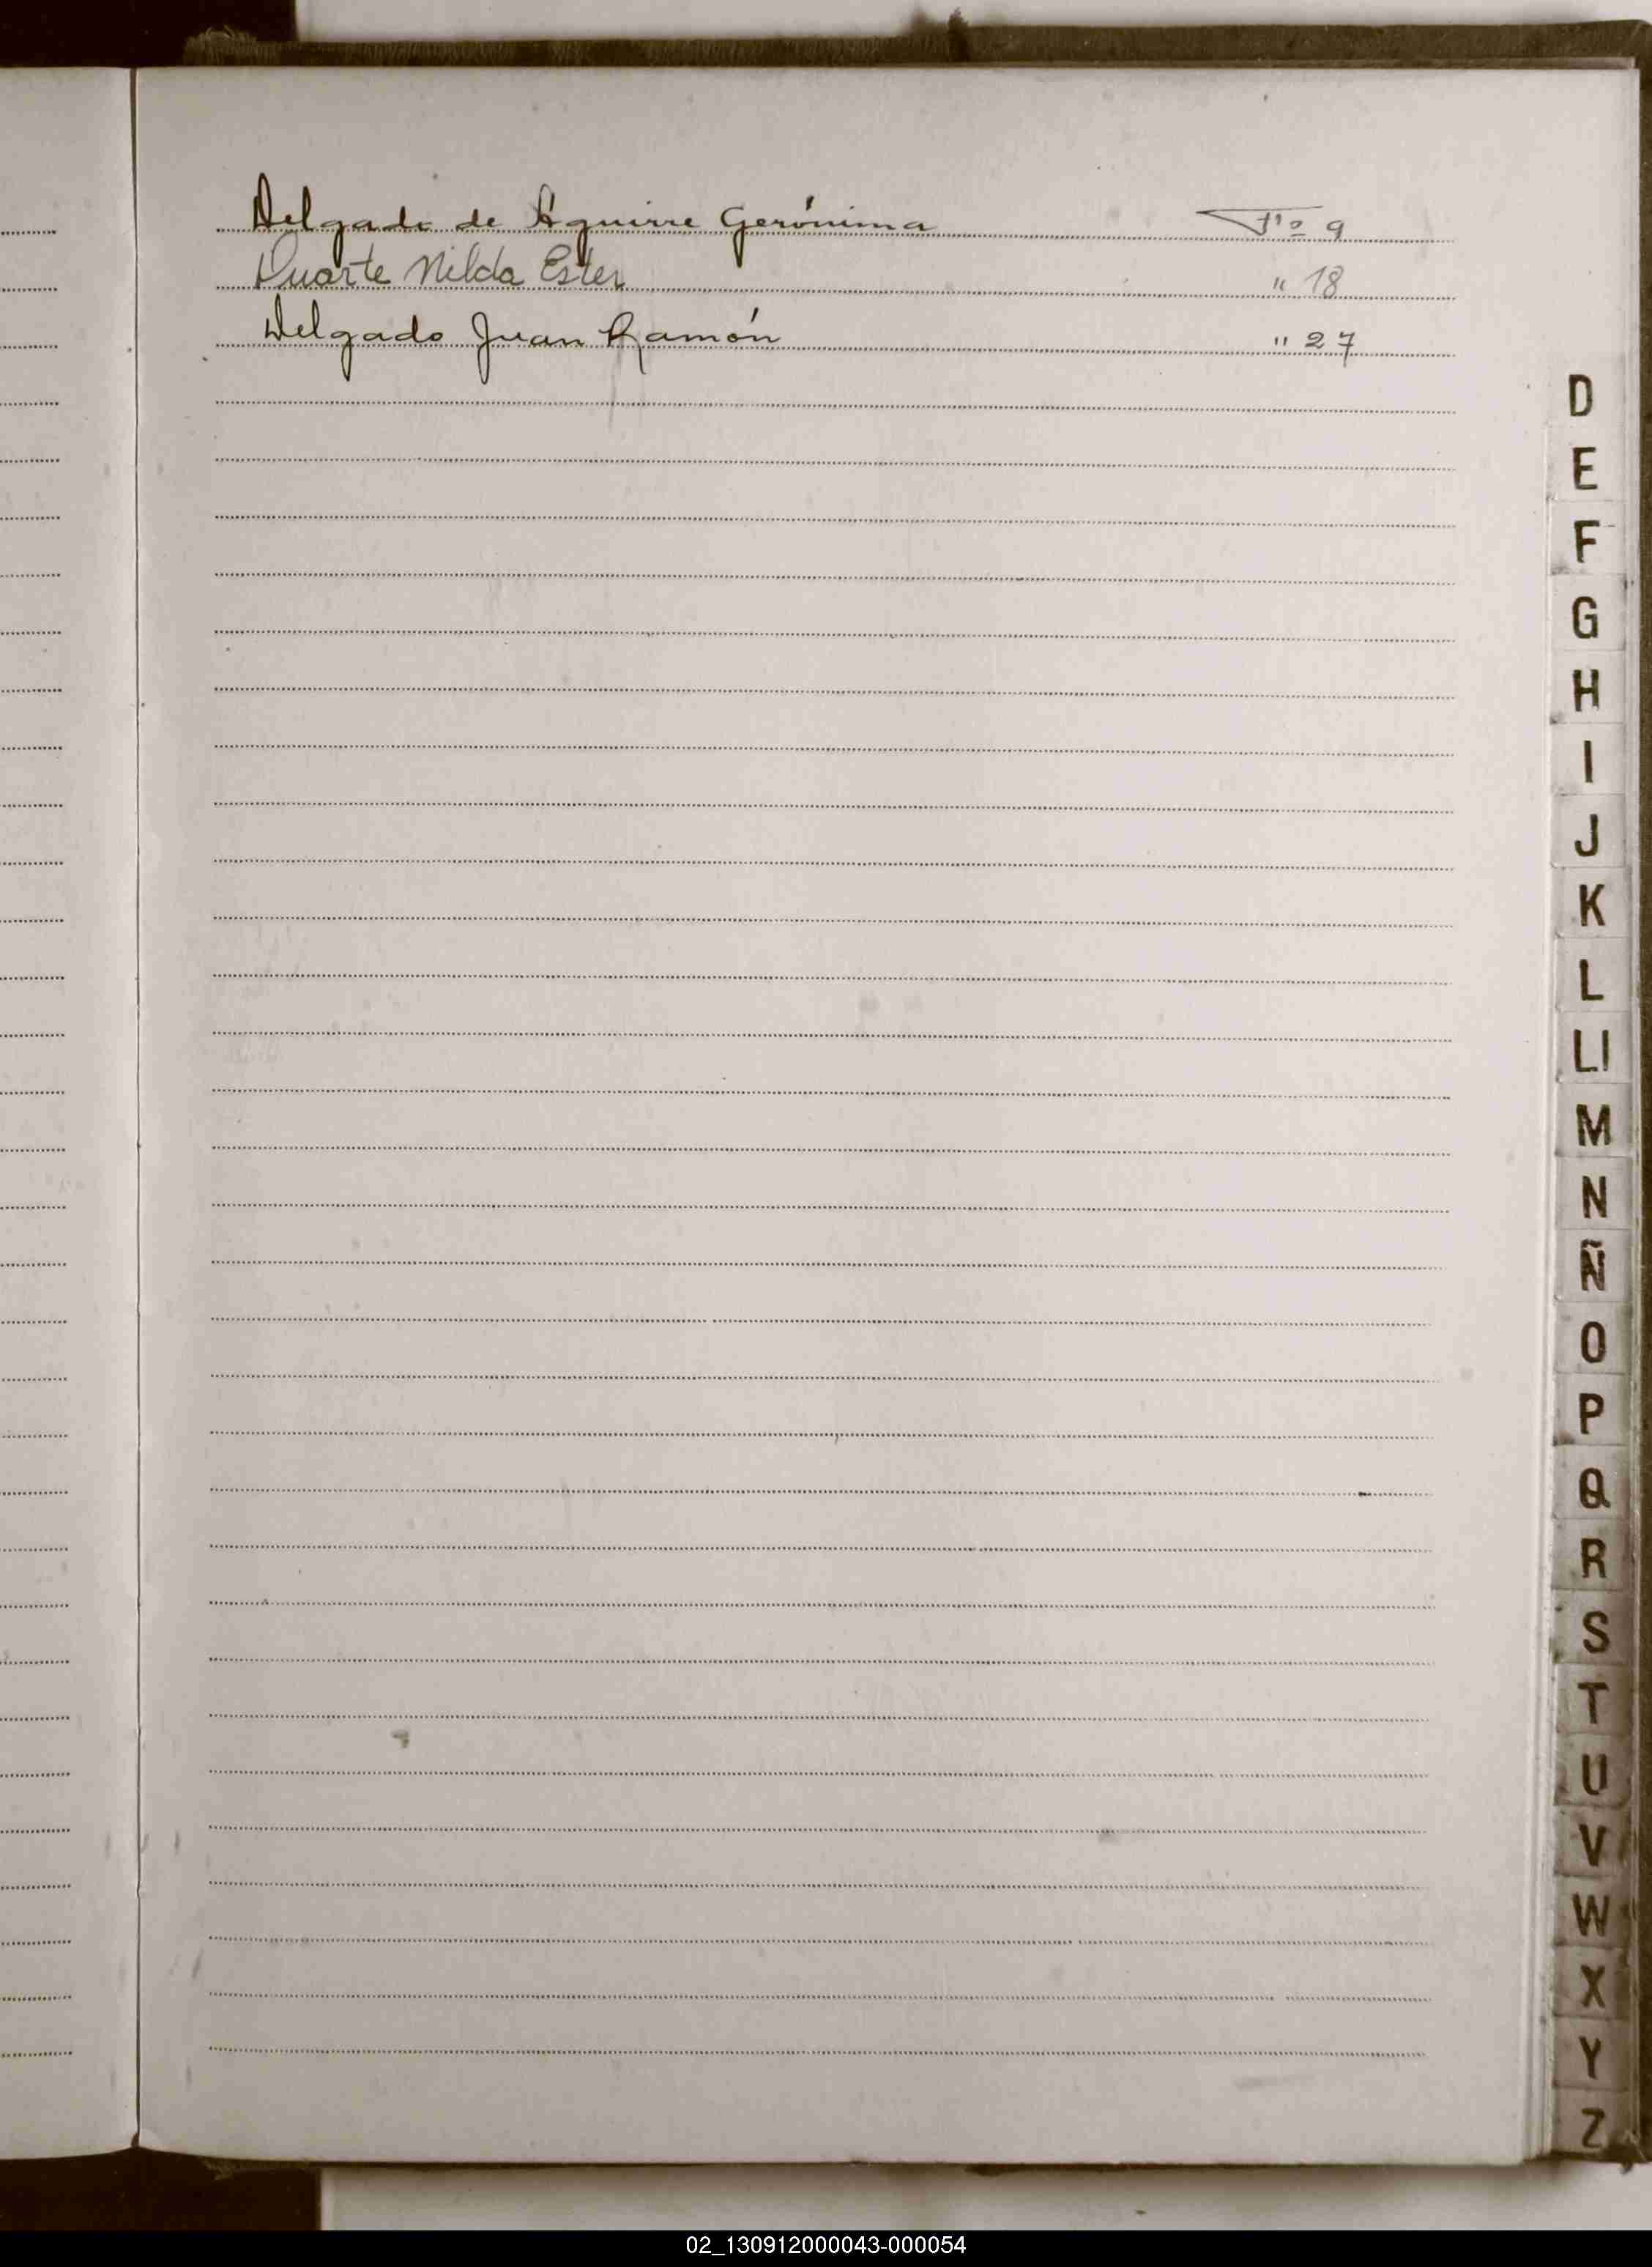 Delgado de Aguirre Gerónima Fº 9
Duarte Nilda Ester " 18
Delgado Juan Ramón " 27
D
E
F
G
H
I
J
K
L
Ll
M
N
Ñ
O
P
Q
R
S
T
U
V
W
X
Y
Z
02_130912000043-000054